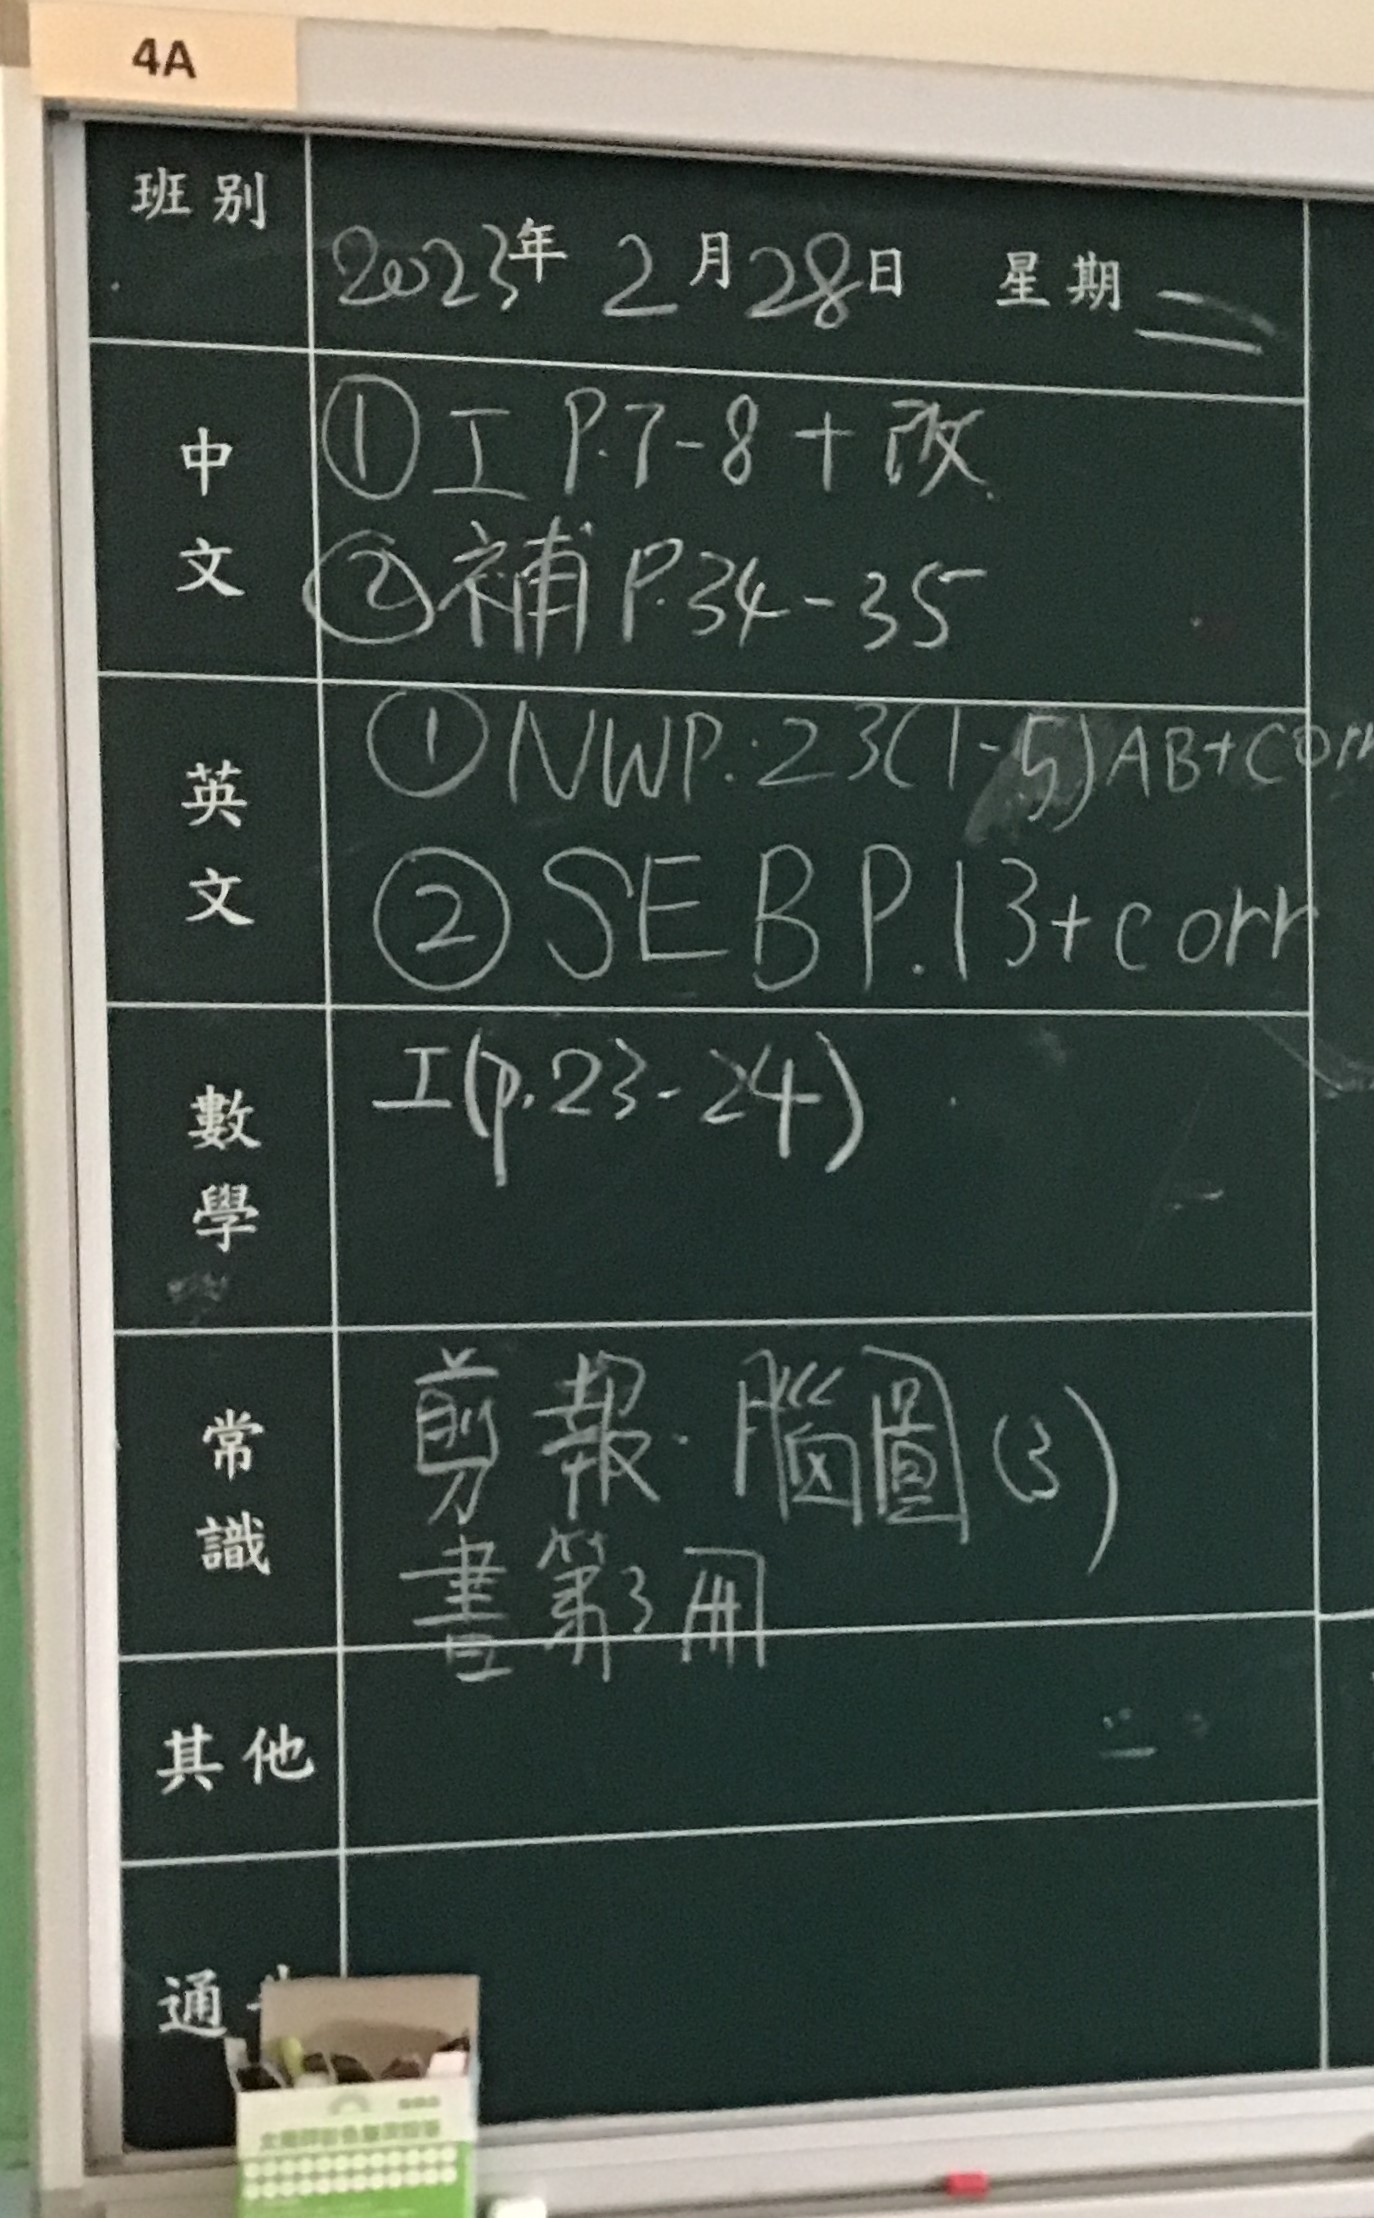 4A
班別
2023年 2月28日 星期二
中文
①工 P.7-8 + 改
②補 P.34-35
英文
①NWP.:23(1-5)AB+corr
②SEB P.13+corr
數學
工(p.23-24)
常識
剪報.腦圖(3)
書第3冊
其他
通